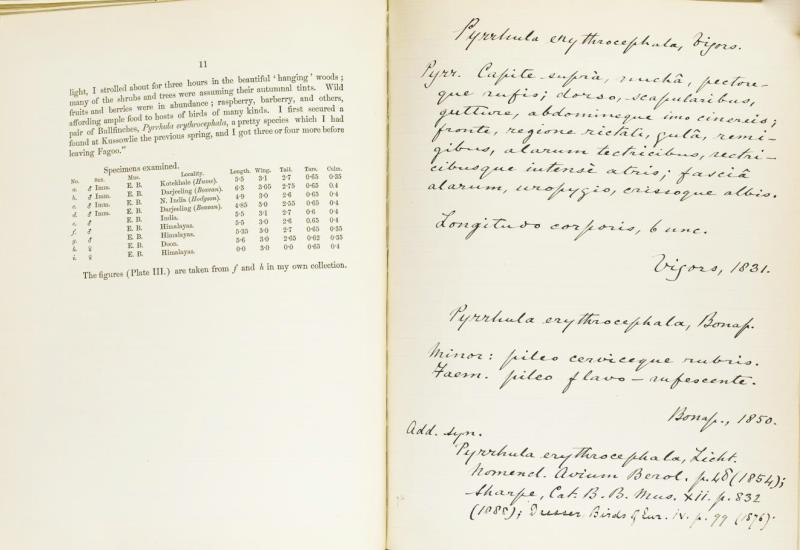 11
light, I strolled about for three hours in the beautiful 'hanging' woods;
many of the shrubs and trees were assuming their autumnal tints. Wild
fruits and berries were in abundance; raspberry, barberry, and others,
affording ample food to hosts of birds of many kinds. I first secured a
pair of Bullfinches, Pyrrhula erythrocephala, a pretty species which I had
found at Kussowlie the previous spring, and I got three or four more before
leaving Fagoo."
Specimens examined.
No. Sex. Mus. Locality. Length. Wing. Tail. Tars. Culm.
a. ♂ Imm. E. B. Kotekhale (Hume). 5·5 3·1 2·7 0·65 0·35
b. ♂ Imm. E. B. Darjeeling (Beavan). 6·3 3·05 2·75 0·65 0·4
c. ♂ Imm. E. B. N. India (Hodgson). 4·9 3·0 2·6 0·65 0·4
d. ♂ Imm. E. B. Darjeeling (Beavan). 4·85 3·0 2·55 0·65 0·4
e. ♂ E. B. India. 5·5 3·1 2·7 0·6 0·4
f. ♂ E. B. Himalayas. 5·5 3·0 2·6 0·65 0·4
g. ♂ E. B. Himalayas. 5·35 3·0 2·7 0·65 0·35
h. ♀ E. B. Doon. 5·6 3·0 2·65 0·62 0·35
i. ♀ E. B. Himalayas. 0·0 3·0 0·0 0·65 0·4
The figures (Plate III.) are taken from f and h in my own collection.
Pyrrhula erythrocephala, Vigors.
Pyrr. Capite suprà, nuchâ, pectore-
que rufis; dorso, scapularibus,
gutture, abdomineque imo cinereis;
fronte, regione rictali, gulâ, remi-
gibus, alarum tectricibus, rectri-
cibusque intensè atris; fasciâ
alarum, uropygio, crissoque albis.
Longitudo corporis, 6 unc.
Vigors, 1831.
Pyrrhula erythrocephala, Bonap.
Minor: pileo cerviceque rubris.
Faem. pileo flavo-rufescente.
Bonap., 1850.
Add. syn.
Pyrrhula erythrocephala, Licht.
Nomencl. Avium Berol. p. 48 (1854);
Sharpe, Cat. B. B. Mus. XII. p. 832
(1888); Dresser, Birds of Eur. IV. p. 99 (1876).